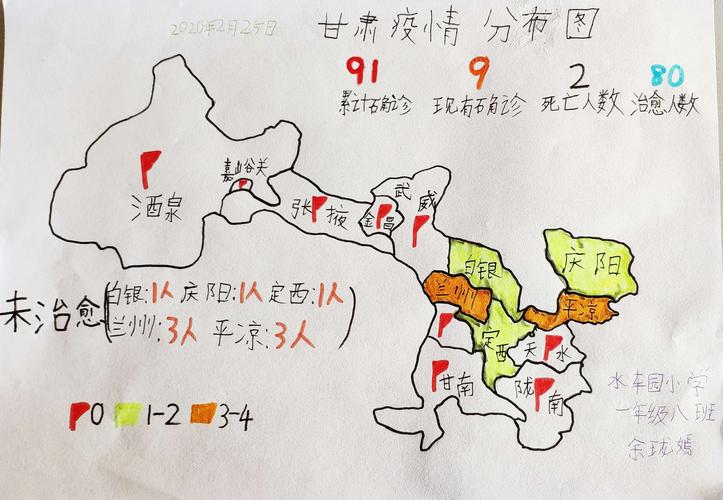 2020年2月25日
甘肃疫情分布图
91 9 2 80
累计确诊 现有确诊 死亡人数 治愈人数
嘉峪关
酒泉
张掖
金昌
武威
白银
庆阳
兰州
平凉
定西
天水
甘南
陇南
未治愈(白银:1人 庆阳:1人 定西:1人
兰州:3人 平凉:3人)
0 1-2 3-4
水车园小学
一年级八班
余珑嫣